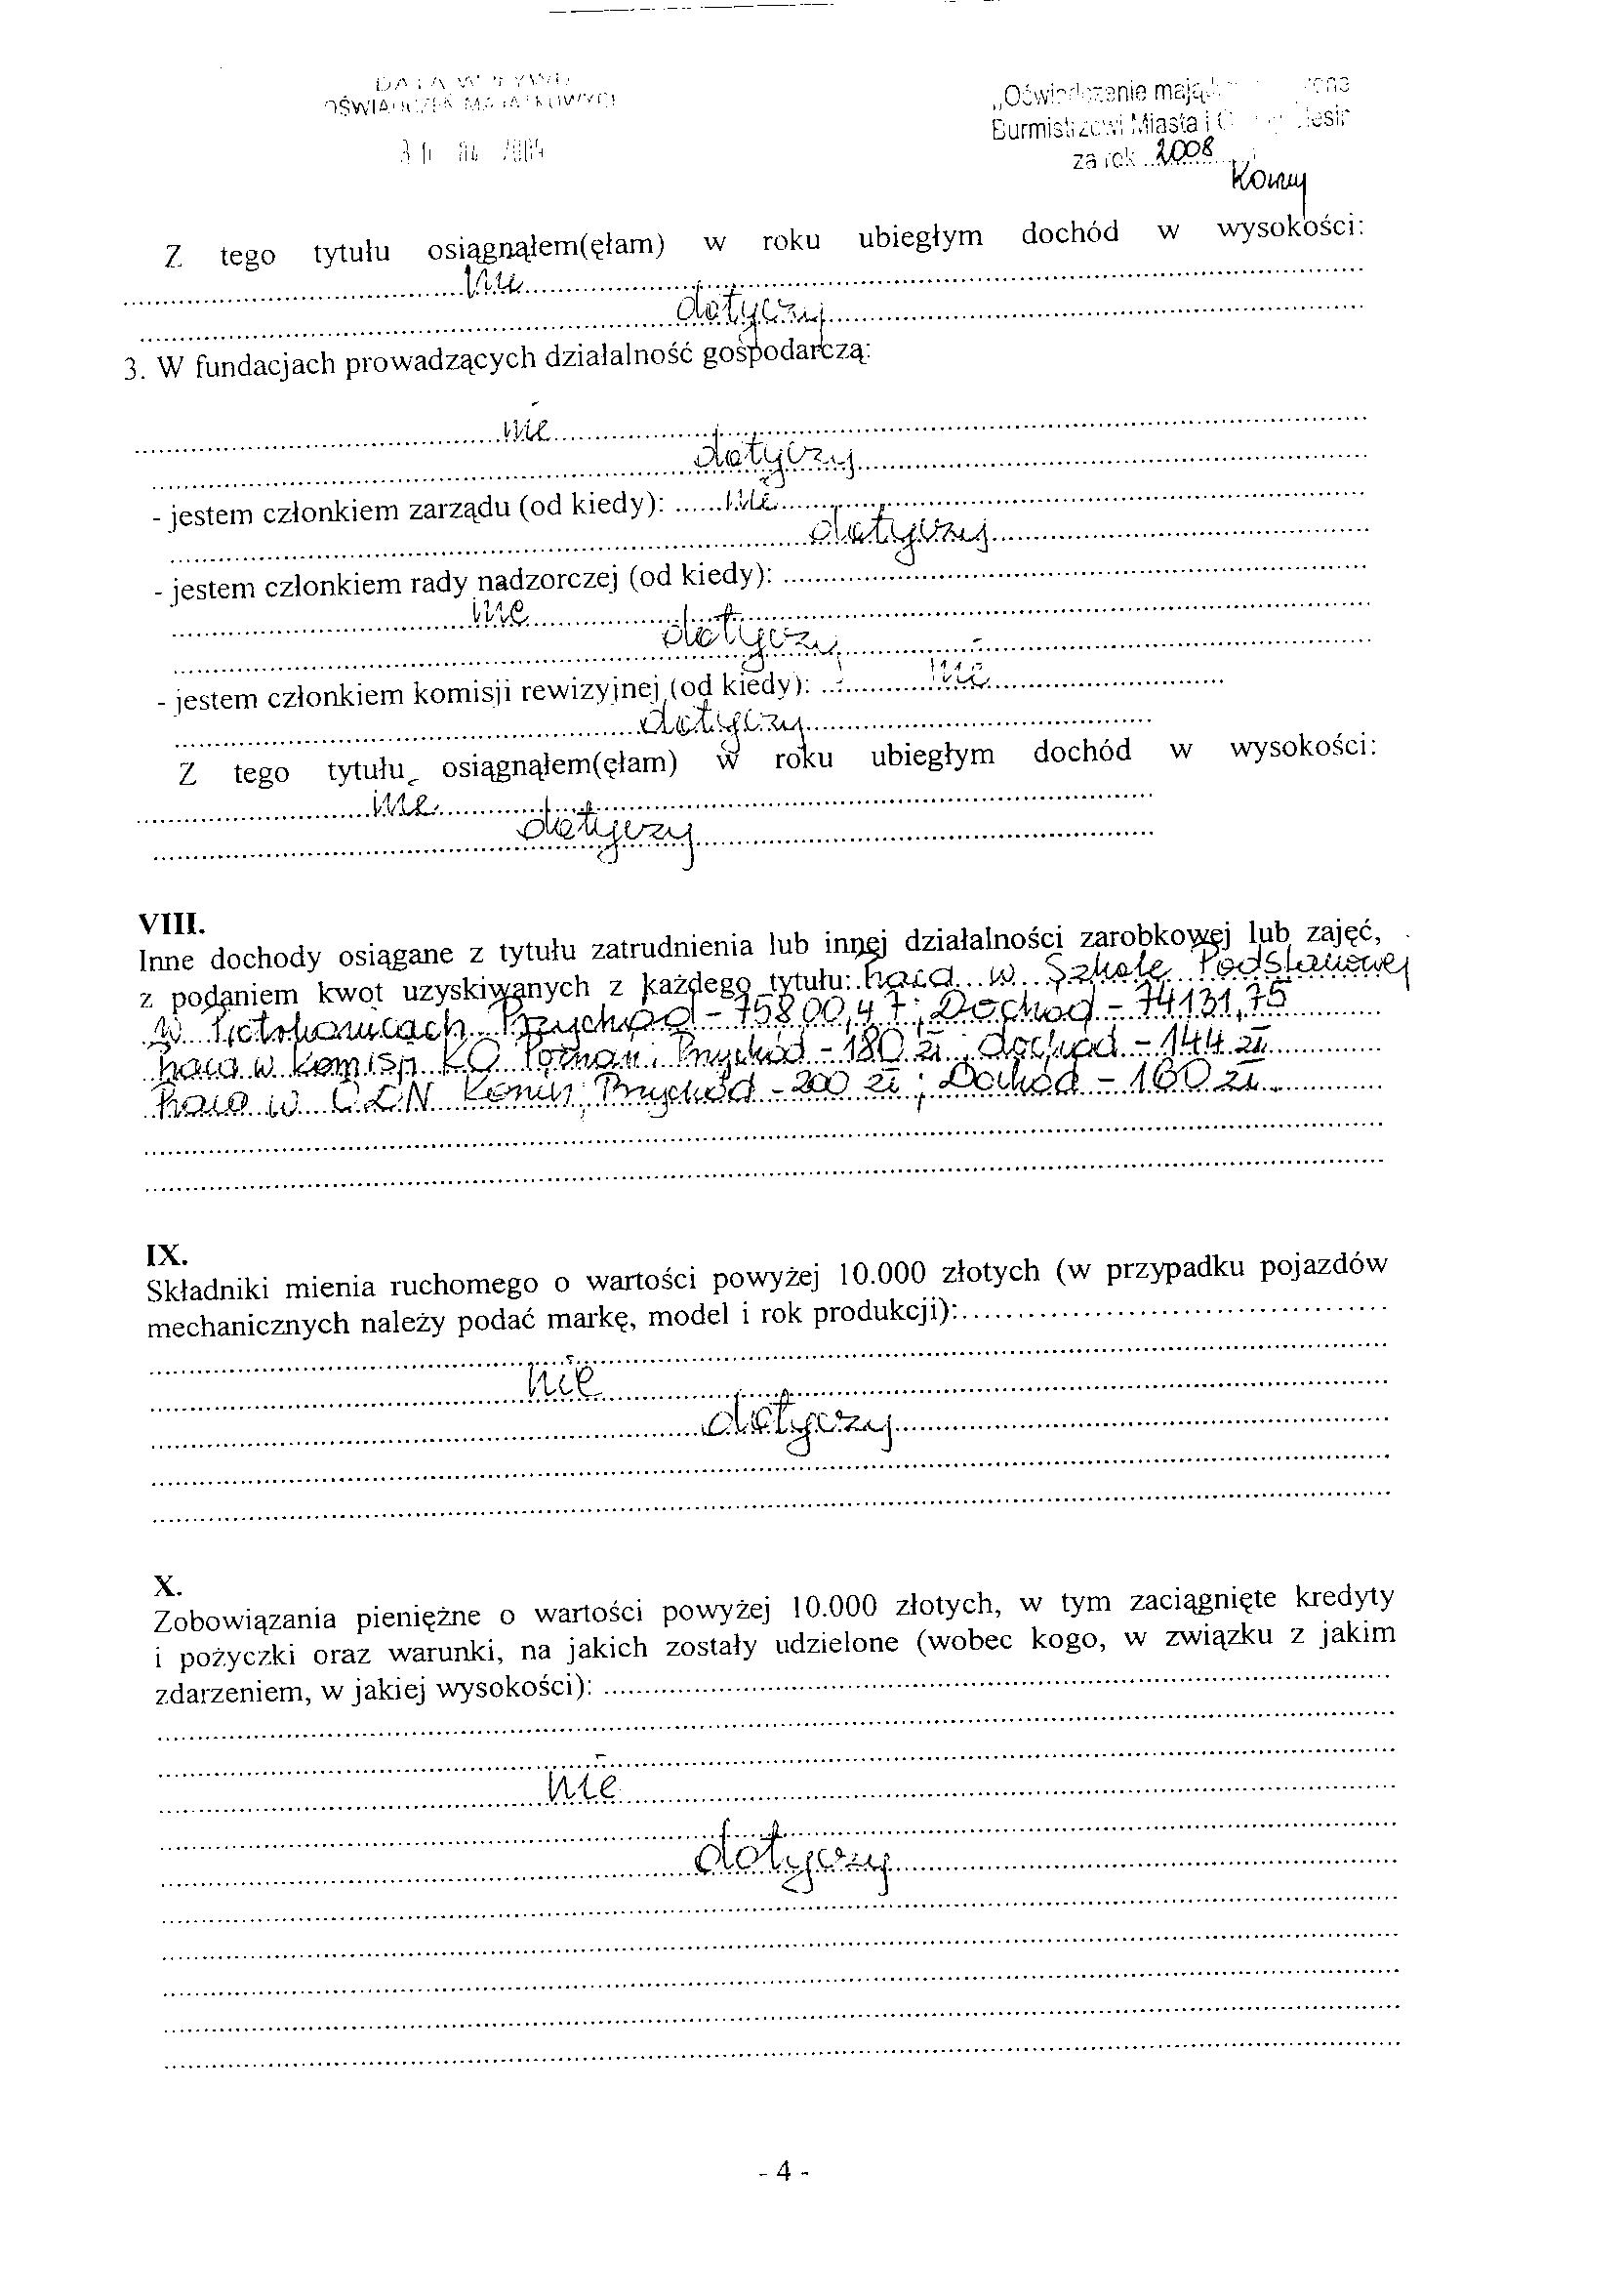 DATA WPŁYWU
OŚWIADCZEŃ MAJĄTKOWYCH
„Oświadczenie
Burmistrzowi Miasta i
za rok 2008
Z tego tytułu osiągnąłem(ęłam) w roku ubiegłym dochód w wysokości:
nie
dotyczy
3. W fundacjach prowadzących działalność gospodarczą:
nie
dotyczy
- jestem członkiem zarządu (od kiedy): nie
dotyczy
- jestem członkiem rady nadzorczej (od kiedy):
nie
dotyczy
- jestem członkiem komisji rewizyjnej (od kiedy): nie
dotyczy
Z tego tytułu osiągnąłem(ęłam) w roku ubiegłym dochód w wysokości:
nie
dotyczy
VIII.
Inne dochody osiągane z tytułu zatrudnienia lub innej działalności zarobkowej lub zajęć,
z podaniem kwot uzyskiwanych z każdego tytułu: Praca w Szkole Podstawowej
w Przychód - 75800,47; Dochód - 74131,75
Praca w komisji Poznań; Przychód - 180 zł; dochód - 144 zł
Praca w Konin; Przychód - 200 zł; Dochód - 160 zł
IX.
Składniki mienia ruchomego o wartości powyżej 10.000 złotych (w przypadku pojazdów
mechanicznych należy podać markę, model i rok produkcji):
nie
dotyczy
X.
Zobowiązania pieniężne o wartości powyżej 10.000 złotych, w tym zaciągnięte kredyty
i pożyczki oraz warunki, na jakich zostały udzielone (wobec kogo, w związku z jakim
zdarzeniem, w jakiej wysokości):
nie
dotyczy
- 4 -